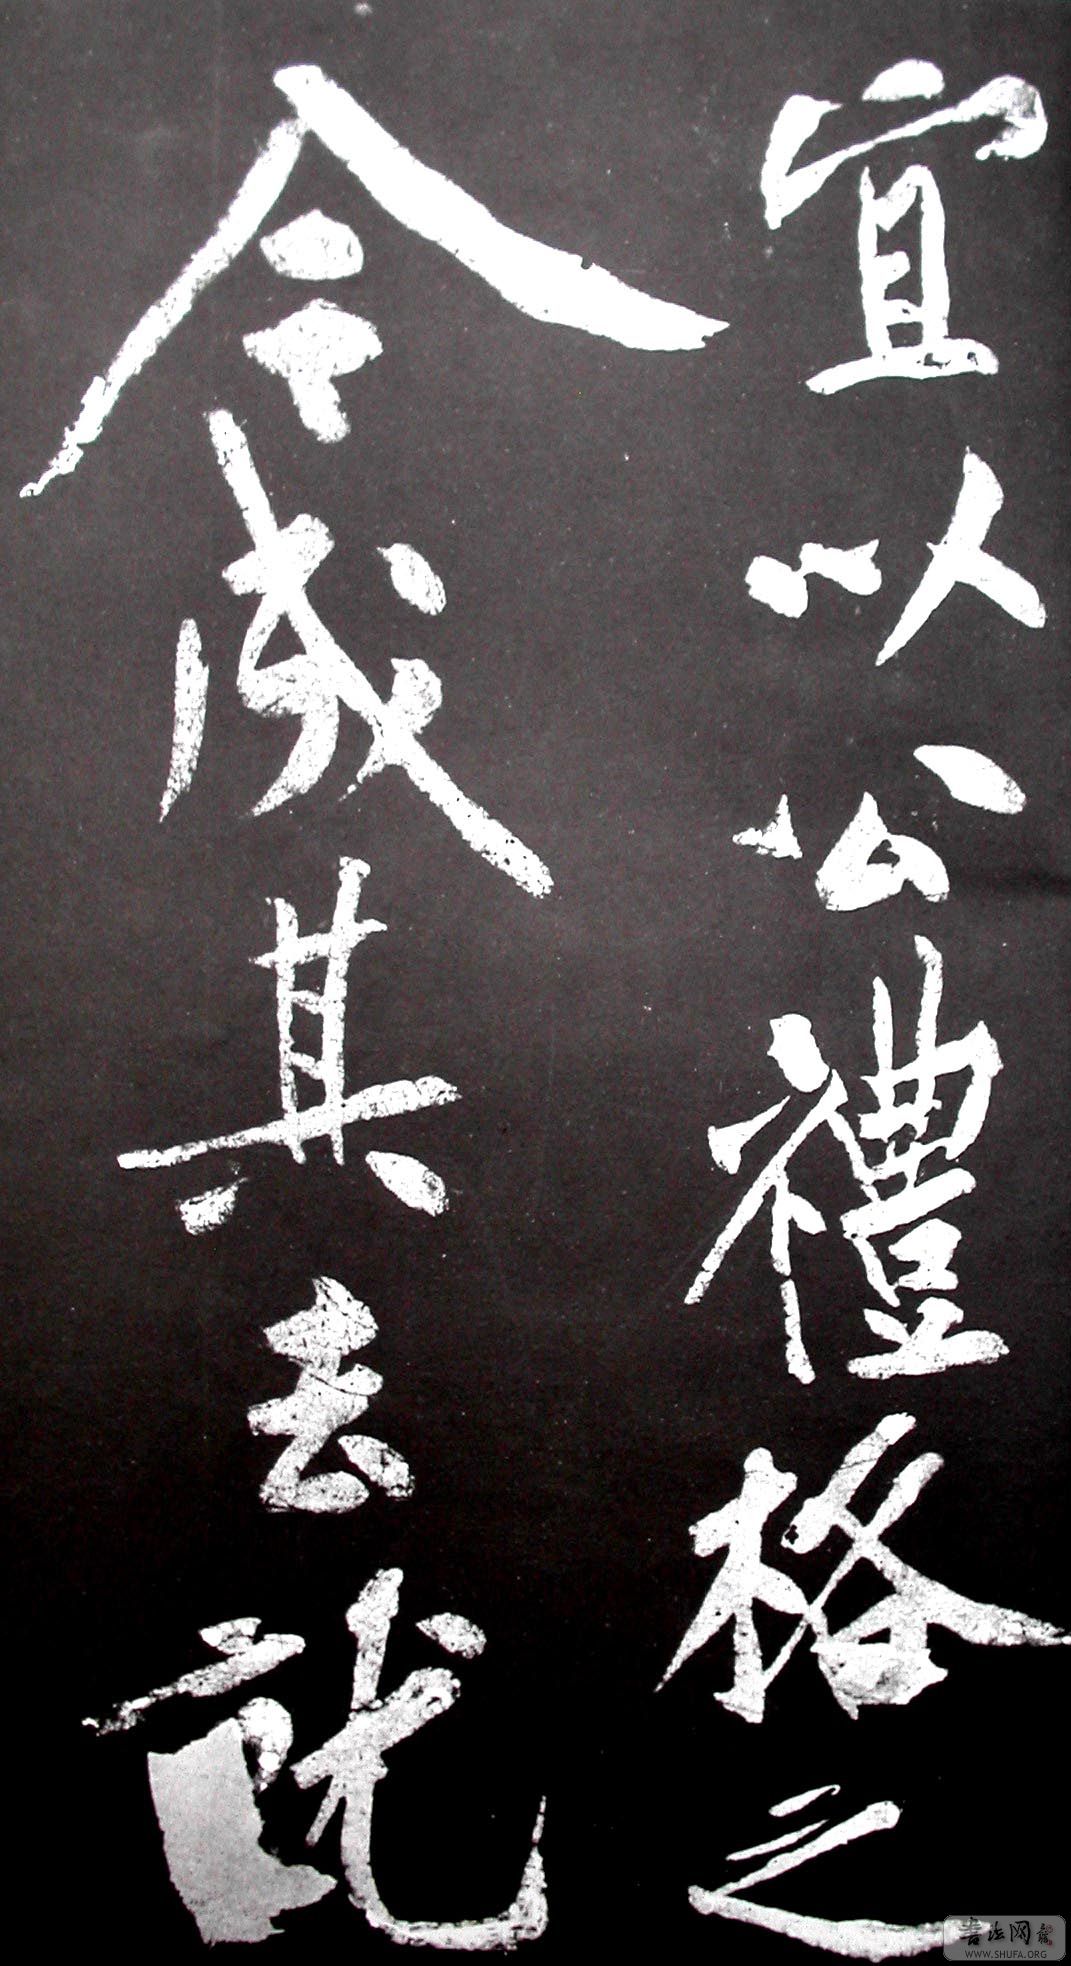 宜以公禮格之
令成其去就
書法网
WWW.SHUFA.ORG